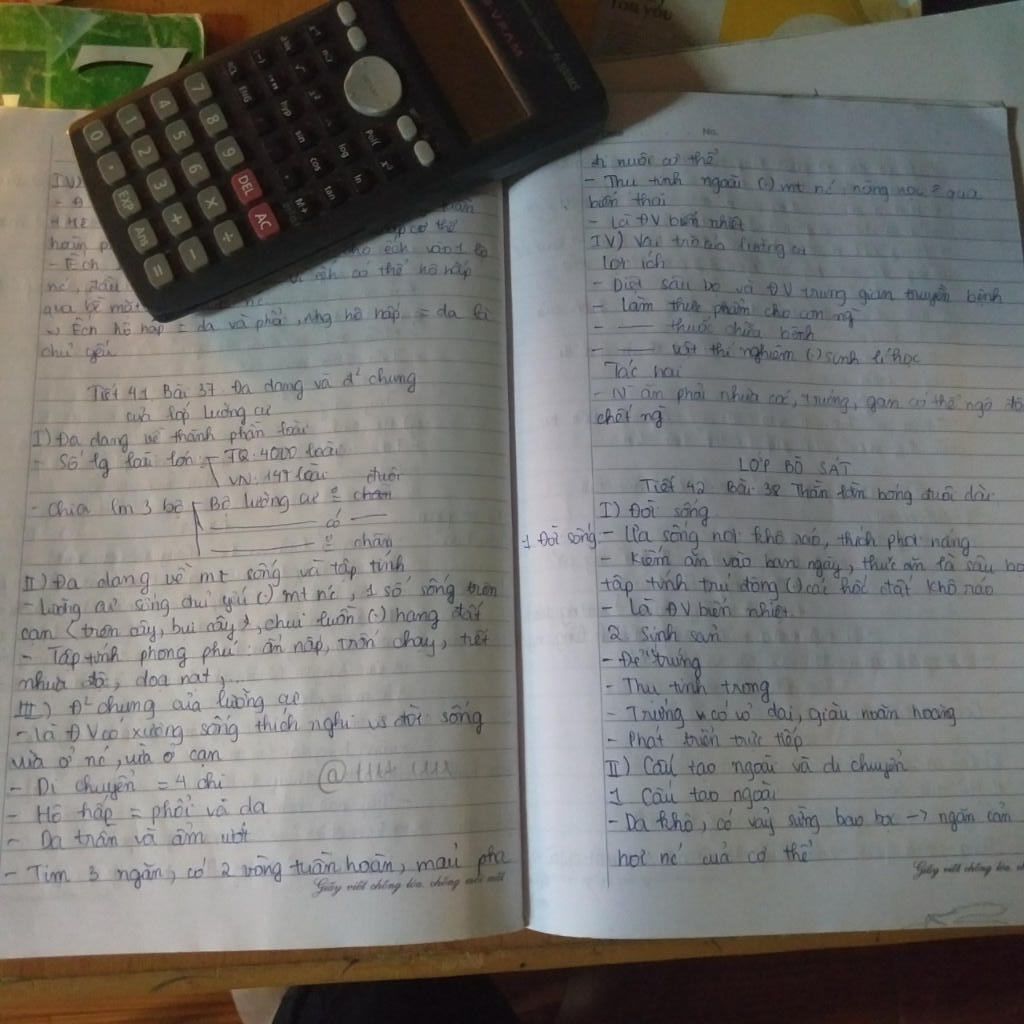 FOR YOU
7
VPAM
IV)
- Đ
hoàn p
- Ếch
cho ếch vào 1 lọ
nc, đầu
ếch có thể hô hấp
qua bề mặt
nc
→ Ếch hô hấp = da và phổi, nhg hô hấp = da là
chủ yếu
Tiết 41 Bài 37. Đa dạng và đ² chung
của lớp lưỡng cư
I) Đa dạng về thành phần loài
- Số lg loài lớn: TG. 4000 loài
VN. 147 loài
đuôi
- Chia lm 3 bộ Bộ lưỡng cư chân
có
chân
II) Đa dạng về mt sống và tập tính
- Lưỡng cư sống chủ yếu (.) mt nc, 1 số sống trên
cạn (trên cây, bụi cây), chui luồn (.) hang đất
- Tập tính phong phú: ẩn nấp, trốn chạy, tiết
nhựa độ, doạ nạt,...
III) Đ² chung của lưỡng cư
- Là ĐV có xương sống thích nghi vs đời sống
vừa ở nc, vừa ở cạn
- Di chuyển = 4 chi
- Hô hấp = phổi và da
- Da trần và ẩm ướt
- Tim 3 ngăn, có 2 vòng tuần hoàn, máu pha
Giấy viết chống lóa, chống mỏi mắt
No.
đi nuôi cơ thể
- Thụ tinh ngoài (.) mt nc nòng nọc qua
biến thái
- Là ĐV biến nhiệt
IV) Vai trò của lưỡng cư
Lợi ích
- Diệt sâu bọ và ĐV trung gian truyền bệnh
- Làm thực phẩm cho con ng
- — thuốc chữa bệnh
- — vật thí nghiệm (.) sinh lí học
Tác hại
- N ăn phải nhựa cóc, trứng, gan có thể ngộ độ
chết ng
LỚP BÒ SÁT
Tiết 42 Bài 38 Thằn lằn bóng đuôi dài
I) Đời sống
1 Đời sống - Ưa sống nơi khô ráo, thích phơi nắng
- Kiếm ăn vào ban ngày, thức ăn là sâu bọ
tập tính trú đông (.) các hốc đất khô ráo
- Là ĐV biến nhiệt
2. Sinh sản
- Đẻ trứng
- Thụ tinh trong
- Trứng có vỏ dai, giàu noãn hoàng
- Phát triển trực tiếp
II) Cấu tạo ngoài và di chuyển
1 Cấu tạo ngoài
- Da khô, có vảy sừng bao bọc → ngăn cản
hơi nc của cơ thể
Giấy viết chống lóa, ch